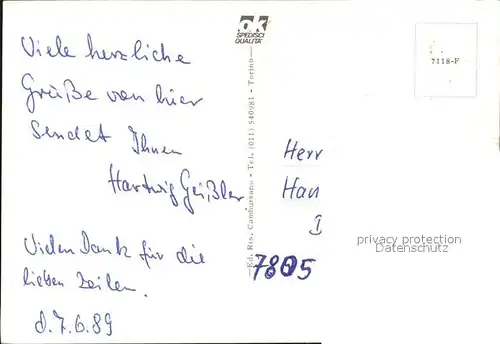 Viele herzliche
Grüße von hier
sendet Ihnen
Hartwig Geißler
Vielen Dank für die
lieben Zeilen.
d. 7.6.89
ok
SPEDISCI
QUALITA'
Ed. Ris. Cambursano - Tel. (011) 540981 - Torino
7118-F
Herr
Han
7805
privacy protection
Datenschutz